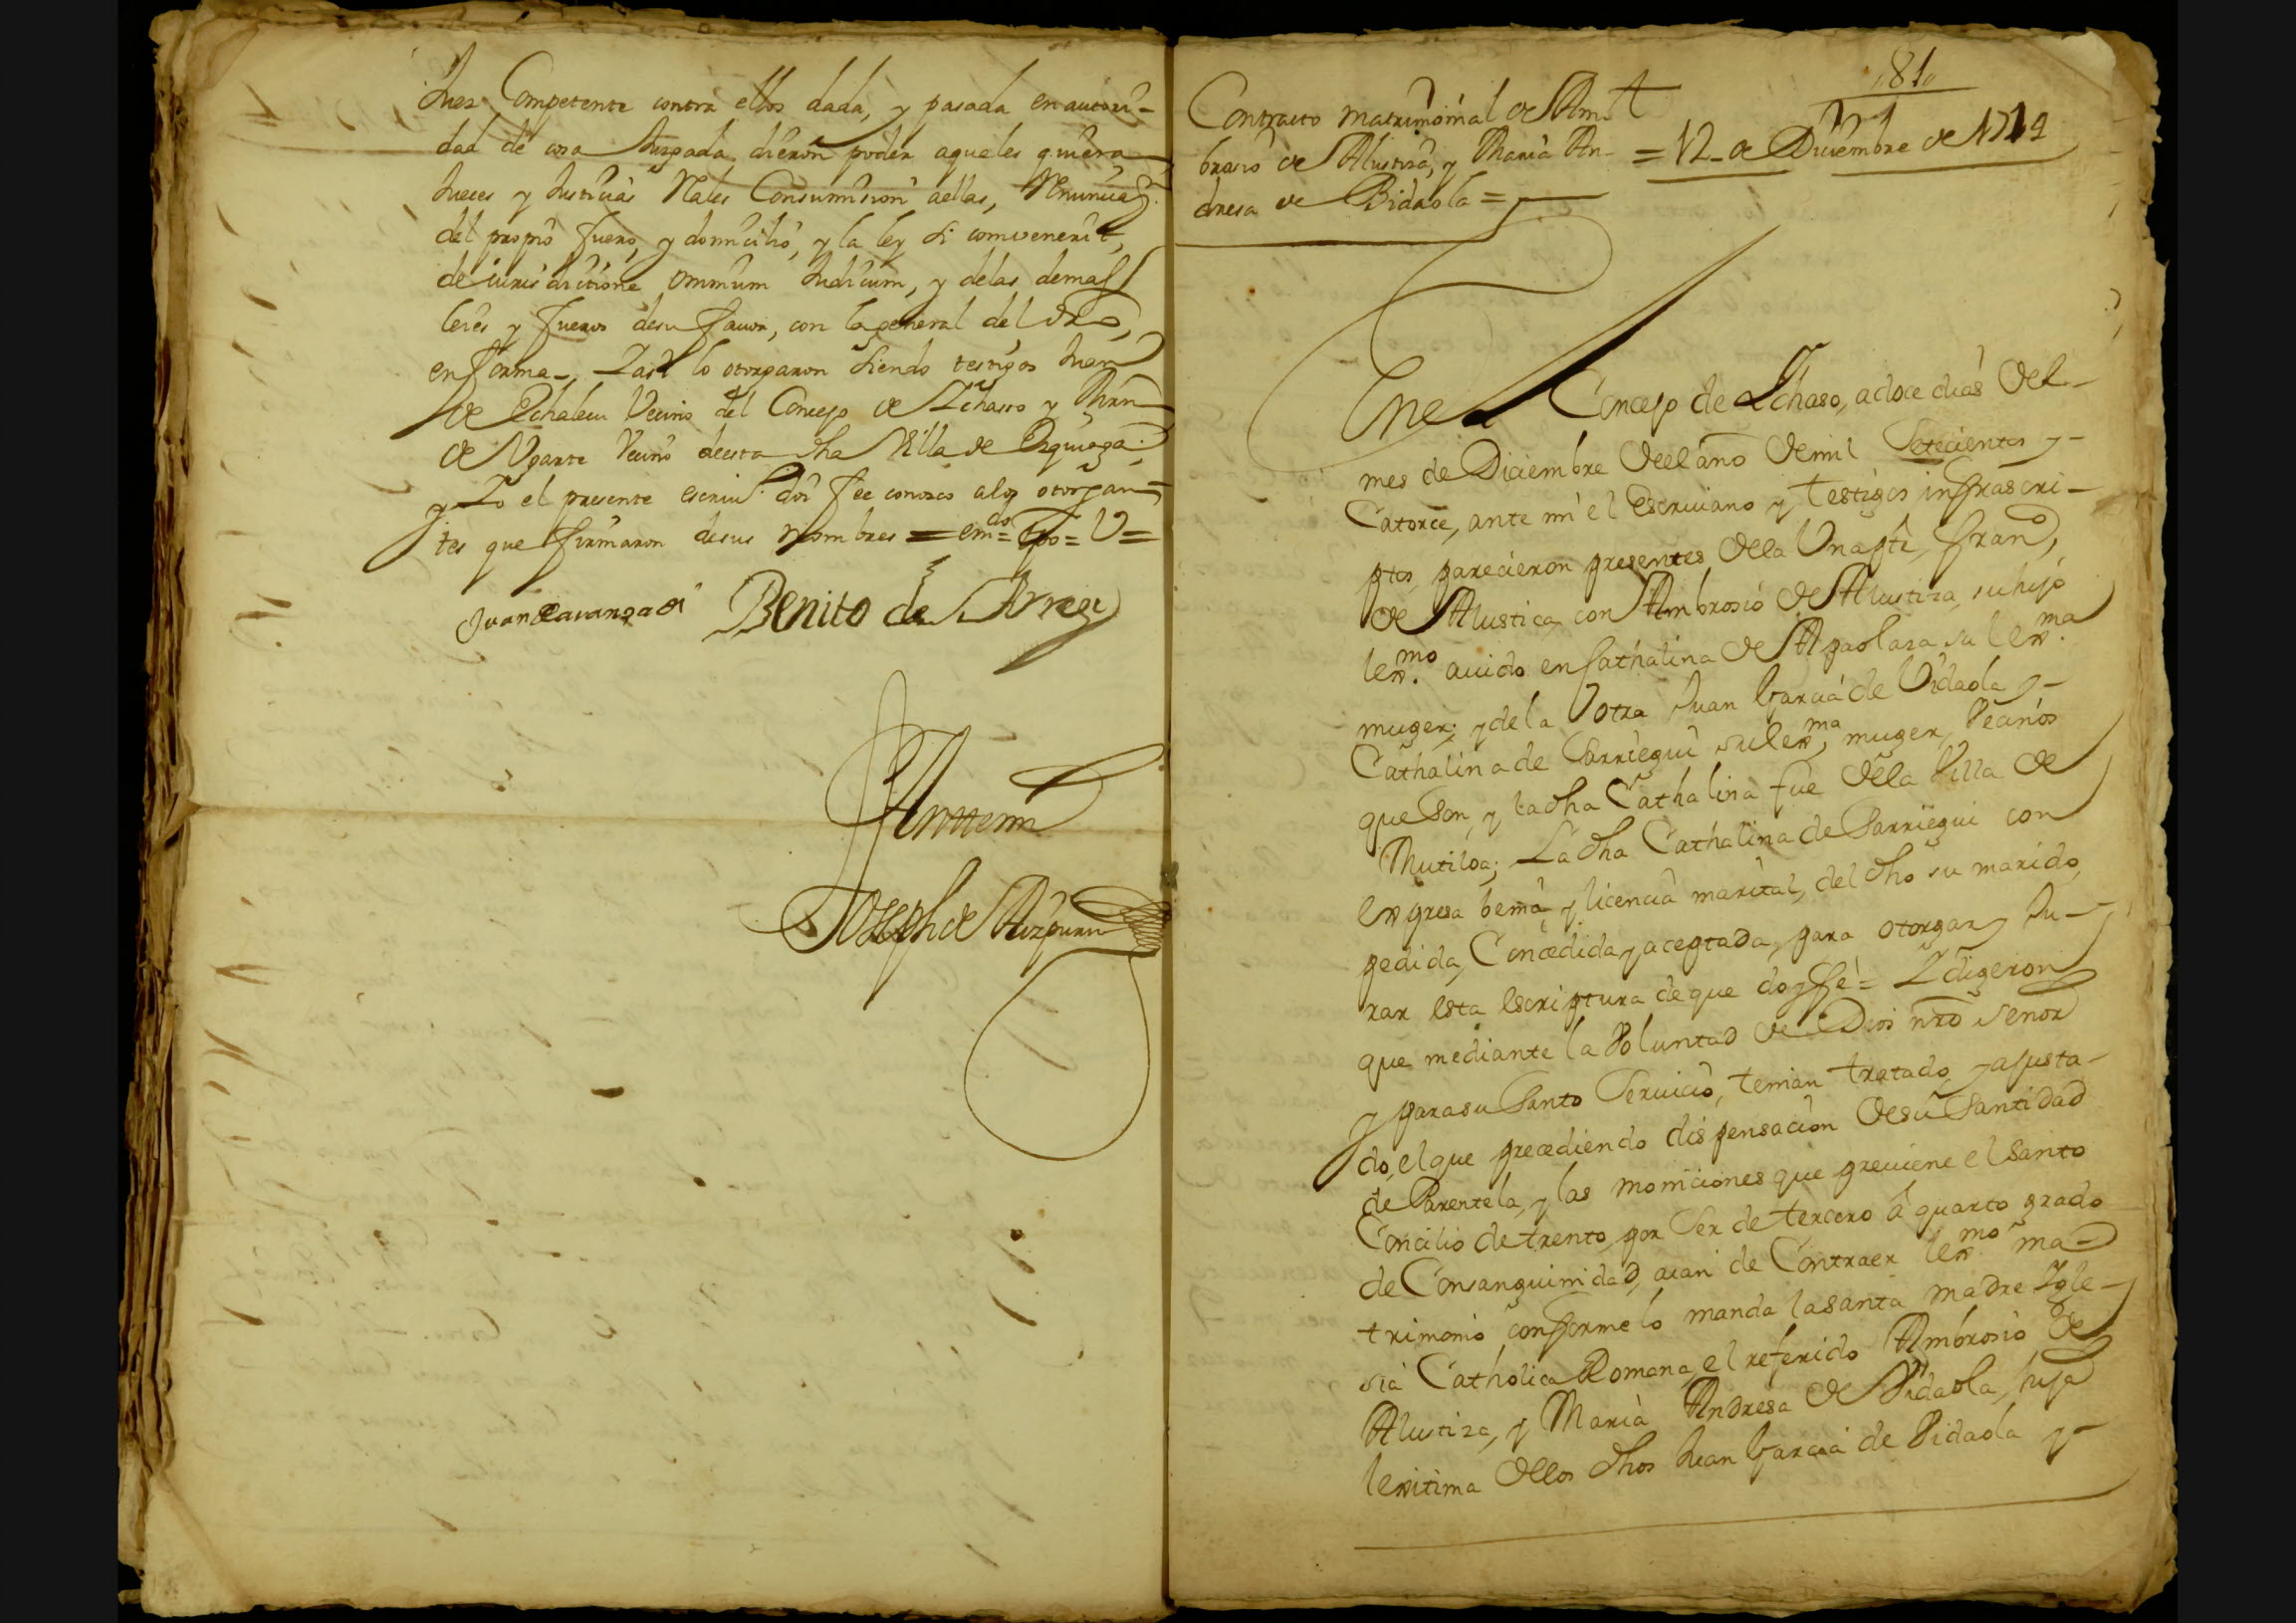 Juez Competente contra ellos dada, y pasada en autori-
dad de cosa Juzgada dieron poder aquales quiera
Jueces y Justicias Rales Con sumision aellas, Renuncia
del propio fuero, y domicilio, y la ley si combenerit,
de iurisdictione omnium Iudicum, y delas demas
leies y fueros desu favor, con la general del dro,
en forma_ Iasi lo otorgaron siendo testigos Juan
de Echaleu Vecino del Concejo de Ichasso y
de Ugarte Vecino deesta dha Villa de
y Io el presente escriu.º doi fee conosco alos otorgan=
tes que firmaron desus nombres = em.do = = V =
Benito de Arregi
Anttemi
Joseph de Aizpuru
,,81,,
Contracto matrimonial de Am t
brosio de Alustiza, y Maria An-
dresa de Bidaola =
= 12_ de Diciembre de 1714
Enel Concejo de Ichaso, adoce dias del-
mes de Diciembre deel año demil Setecientos y-
Catorce, ante mi el Escriuano y testigos infrascri-
ptos, parecieron presentes, della Una pte, franco,
de Alustiza con Ambrosio de Alustiza, su hijo
lexmo. auido en Cathalina de Apaolaza su lexma.
muger; y de la Votra Juan Garcia de Vidaola y-
Cathalina de Sarriegui su lexma, muger, Vecinos
que son, y la dha Cathalina fue dela Villa de
Mutiloa; La dha Cathalina de Sarriegui con
expresa benia, y licencia marital, del dho su marido,
pedida, Concedida, y aceptada, para otorgar, y Ju-
rar esta escriptura de que doy fè = I digeron
que mediante la Voluntad de Dios nro señor
y para su Santo Seruicio, tenian tratado, y ajusta-
do, el que precediendo dispensacion desu Santidad
de Parentela, y las moniciones que preuiene el santo
Concilio de trento, por Ser de tercero â quarto grado
de Consanguinidad, aian de Contraer lexmo. ma-
trimonio conforme lo manda la santa madre Igle-
sia Catholica Romana, el referido Ambrosio de
Alustiza, y Maria Andresa de Vidaola, hija
lexitima dellos dhos Juan Garcia de Vidaola y-